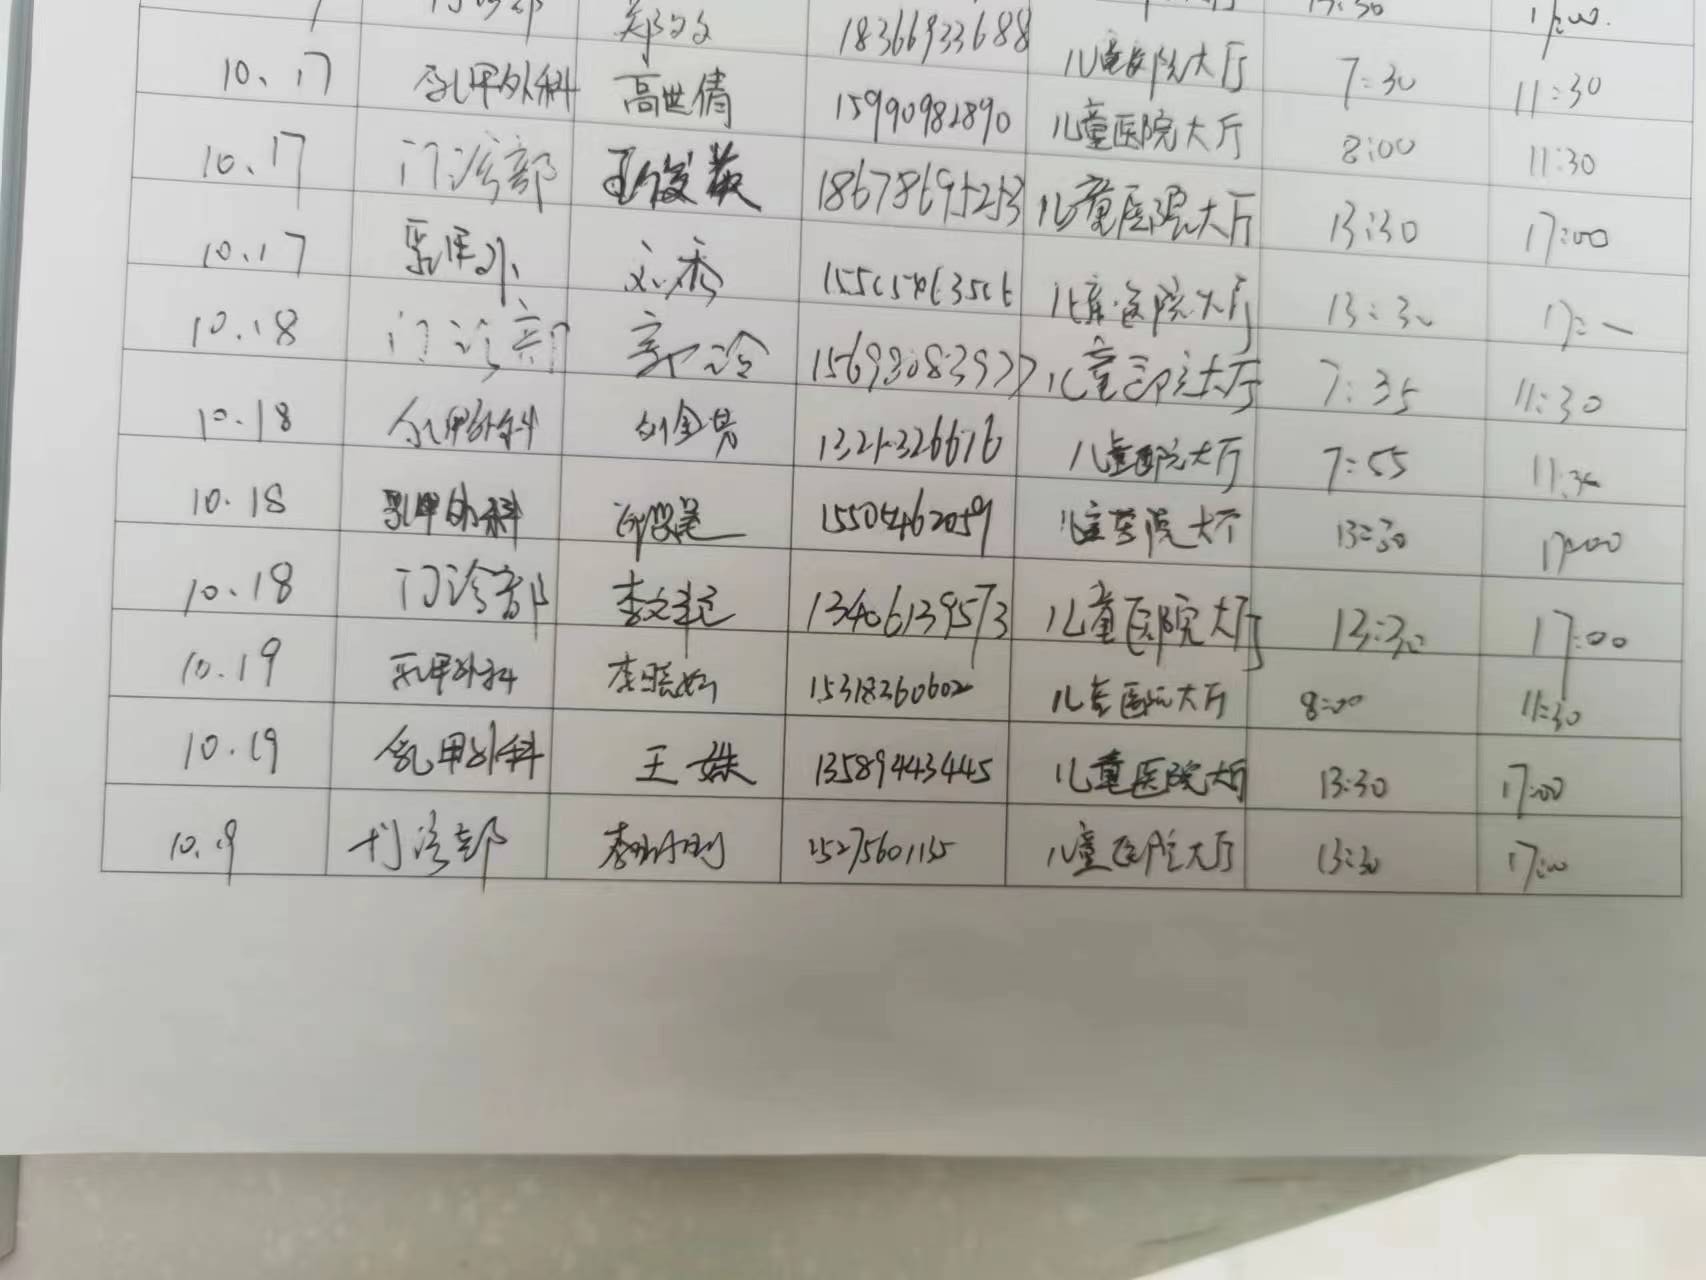 郑文文 18366933688 13:30 17:00
10.17 乳甲外科 高世倩 15990982890 儿童医院大厅 7:30 11:30
10.17 门诊部 王俊英 18678695253 儿童医院大厅 8:00 11:30
10.17 乳甲外 刘秀 儿童医院大厅 13:30 17:00
10.18 门诊部 郭冷 15693083977 儿童医院大厅 13:30
10.18 乳甲外科 刘金昔 儿童医院大厅 7:35 11:30
10.18 乳甲外科 15505462059 儿童医院大厅 7:55 11:30
10.18 门诊部 李文 13406139573 儿童医院大厅 13:30 17:00
10.19 乳甲外科 李晓 15318360602 儿童医院大厅 13:30 17:00
10.19 乳甲外科 王姝 13589443445 儿童医院大厅 8:00 11:30
10.19 门诊部 15275601135 儿童医院大厅 13:30 17:00
儿童医院大厅 13:30 17:00